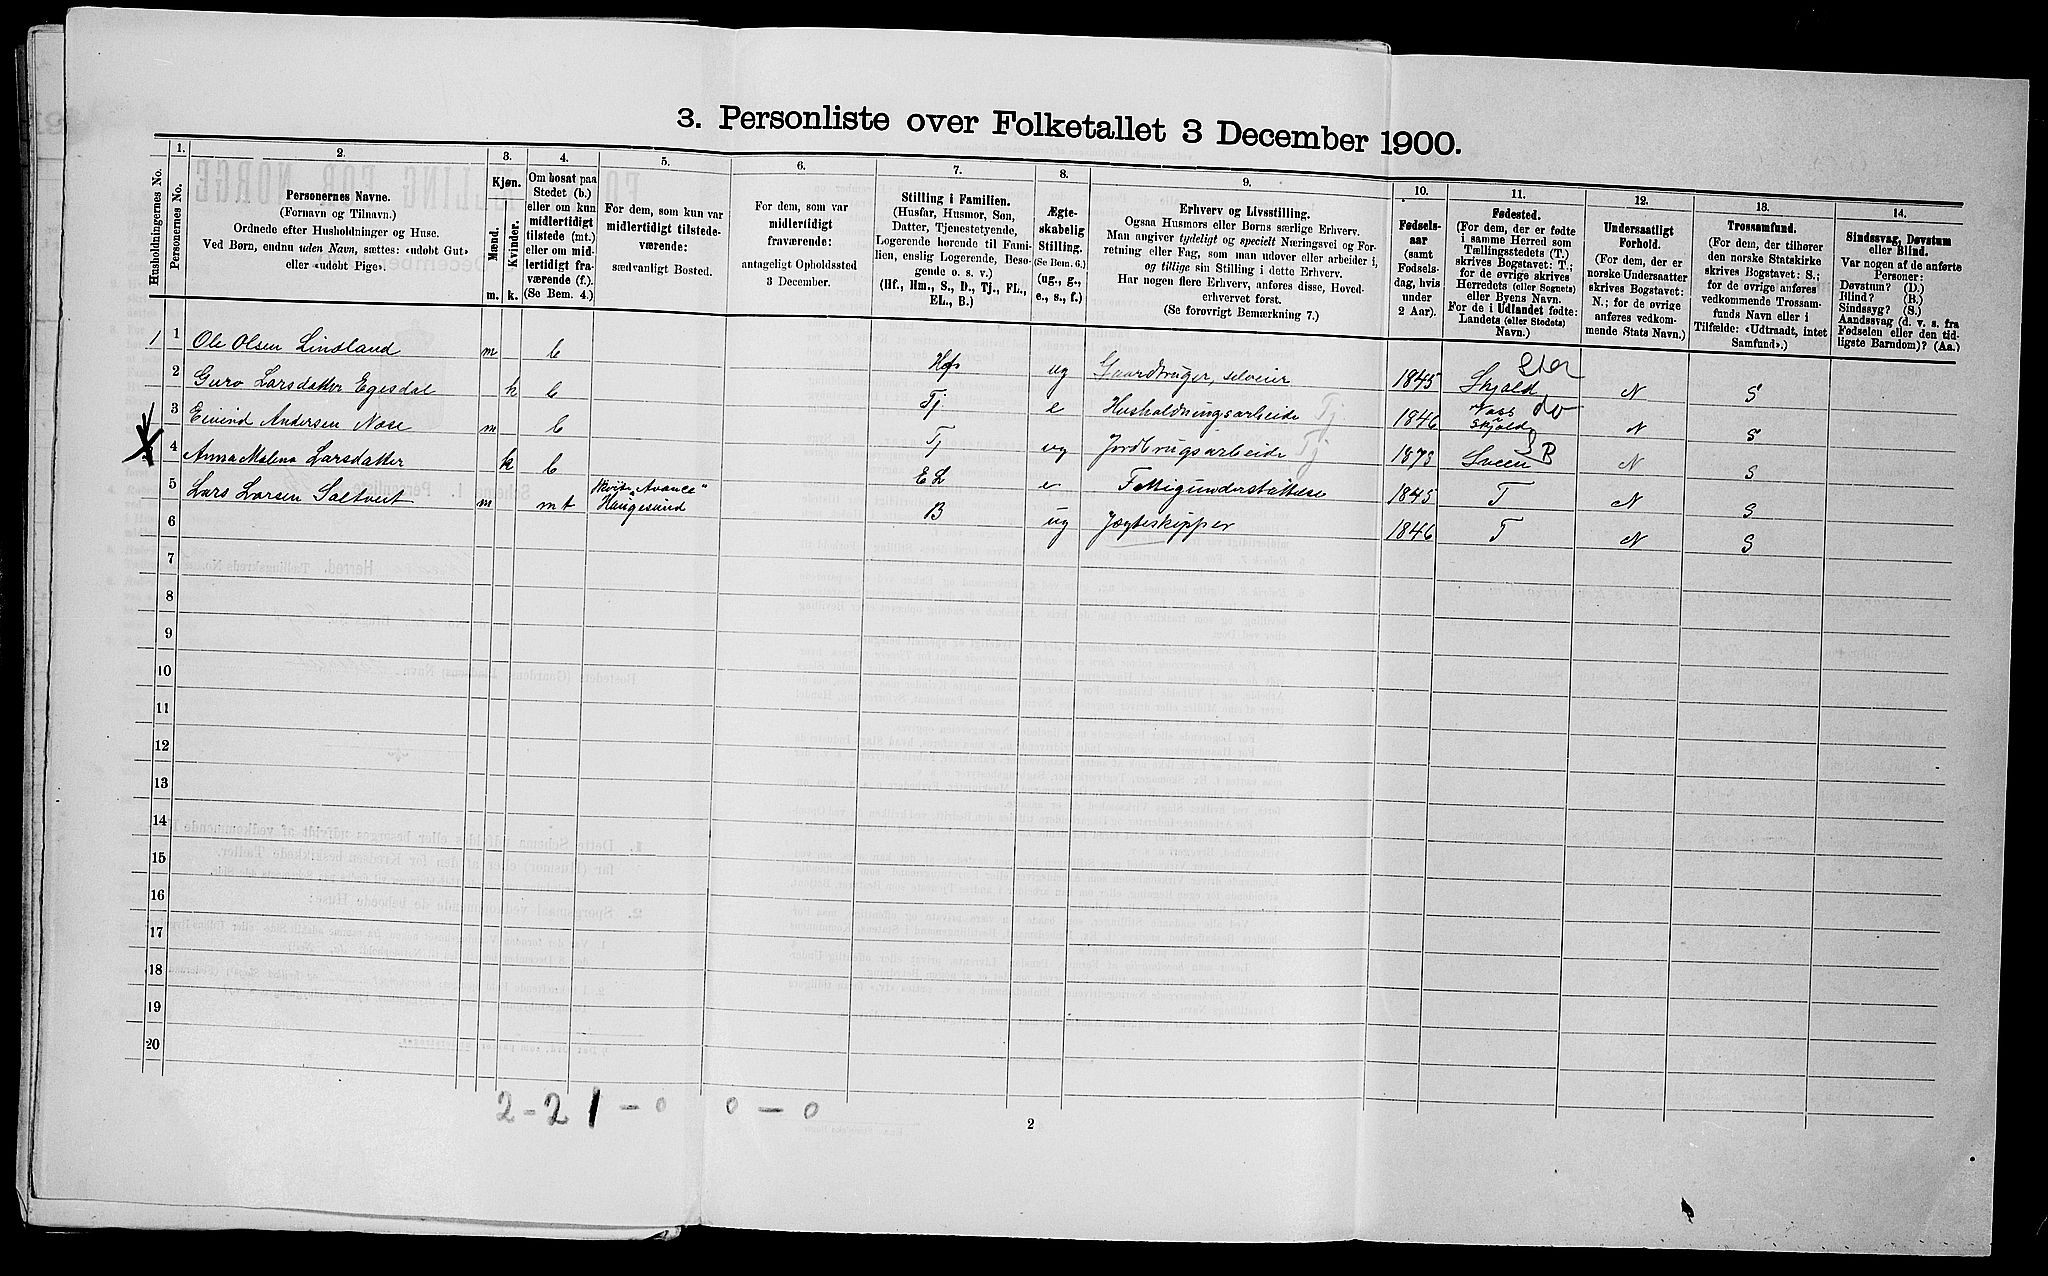 3. Personliste over Folketallet 3 December 1900.
Husholdningernes No.
1.
Personernes No.
2.
Personernes Navne.
(Fornavn og Tilnavn.)
Ordnede efter Husholdninger og Huse.
Ved Børn, endnu uden Navn, sættes: «udøbt Gut»
eller «udøbt Pige».
3.
Kjøn.
Mænd.
Kvinder.
m.
k.
4.
Om bosat paa
Stedet (b.)
eller om kun
midlertidigt
tilstede (mt.)
eller om mid-
lertidigt fra-
værende (f.).
(Se Bem. 4.)
5.
For dem, som kun var
midlertidigt tilstede-
værende:
sædvanligt Bosted.
6.
For dem, som var
midlertidigt
fraværende:
antageligt Opholdssted
3 December.
7.
Stilling i Familien.
(Husfar, Husmor, Søn,
Datter, Tjenestetyende,
Logerende hørende til Fami-
lien, enslig Logerende, Besø-
gende o. s. v.)
(Hf., Hm., S., D., Tj., FL.,
EL., B.)
8.
Ægte-
skabelig
Stilling.
(Se Bem. 6.)
(ug., g.,
e., s., f.)
9.
Erhverv og Livsstilling.
Ogsaa Husmors eller Børns særlige Erhverv.
Man angiver tydeligt og specielt Næringsvei og For-
retning eller Fag, som man udover eller arbeider i,
og tillige sin Stilling i dette Erhverv.
Har nogen flere Erhverv, anføres disse, Hoved-
erhvervet først.
(Se forøvrigt Bemærkning 7.)
10.
Fødsels-
aar
(samt
Fødsels-
dag, hvis
under
2 Aar).
11.
Fødested.
(For dem, der er fødte
i samme Herred som
Tællingsstedets (T.)
skrives Bogstavet: T.;
for de øvrige skrives
Herredets (eller Sognets)
eller Byens Navn.
For de i Udlandet fødte:
Landets (eller Stedets)
Navn.)
12.
Undersaatligt
Forhold.
(For dem, der er
norske Undersaatter
skrives Bogstavet:
N.; for de øvrige
anføres vedkom-
mende Stats Navn.)
13.
Trossamfund.
(For dem, der tilhører
den norske Statskirke
skrives Bogstavet: S.;
for de øvrige anføres
vedkommende Trossam-
funds Navn eller i
Tilfælde: «Udtraadt, intet
Samfund».)
14.
Sindssvag, Døvstum
eller Blind.
Var nogen af de anførte
Personer:
Døvstum? (D.)
Blind? (B.)
Sindssyg? (S.)
Aandssvag (d. v. s. fra
Fødselen eller den tid-
ligste Barndom)? (Aa.)
1 1 Ole Olsen Lindland m b Hf ug Gaardbruger, selveier 1845 Skjold N S
2 Guro Larsdatter Egesdal k b Tj. e Husholdningsarbeide Tj. 1846 Vats Skjold do N S
3 Eivind Andersen Næse m b Tj ug Jordbrugsarbeide Tj 1873 Sveen B N S
4 Anna Malena Larsdatter k b EL e Fattigunderstøttelse 1845 T N S
5 Lars Larsen Saltveit m mt "Avance" Haugesund B ug Jægteskipper 1846 T N S
6
7
8
9
10
11
12
13
14
15
16
17
18
19
20
2-2 1-0 0-0
2